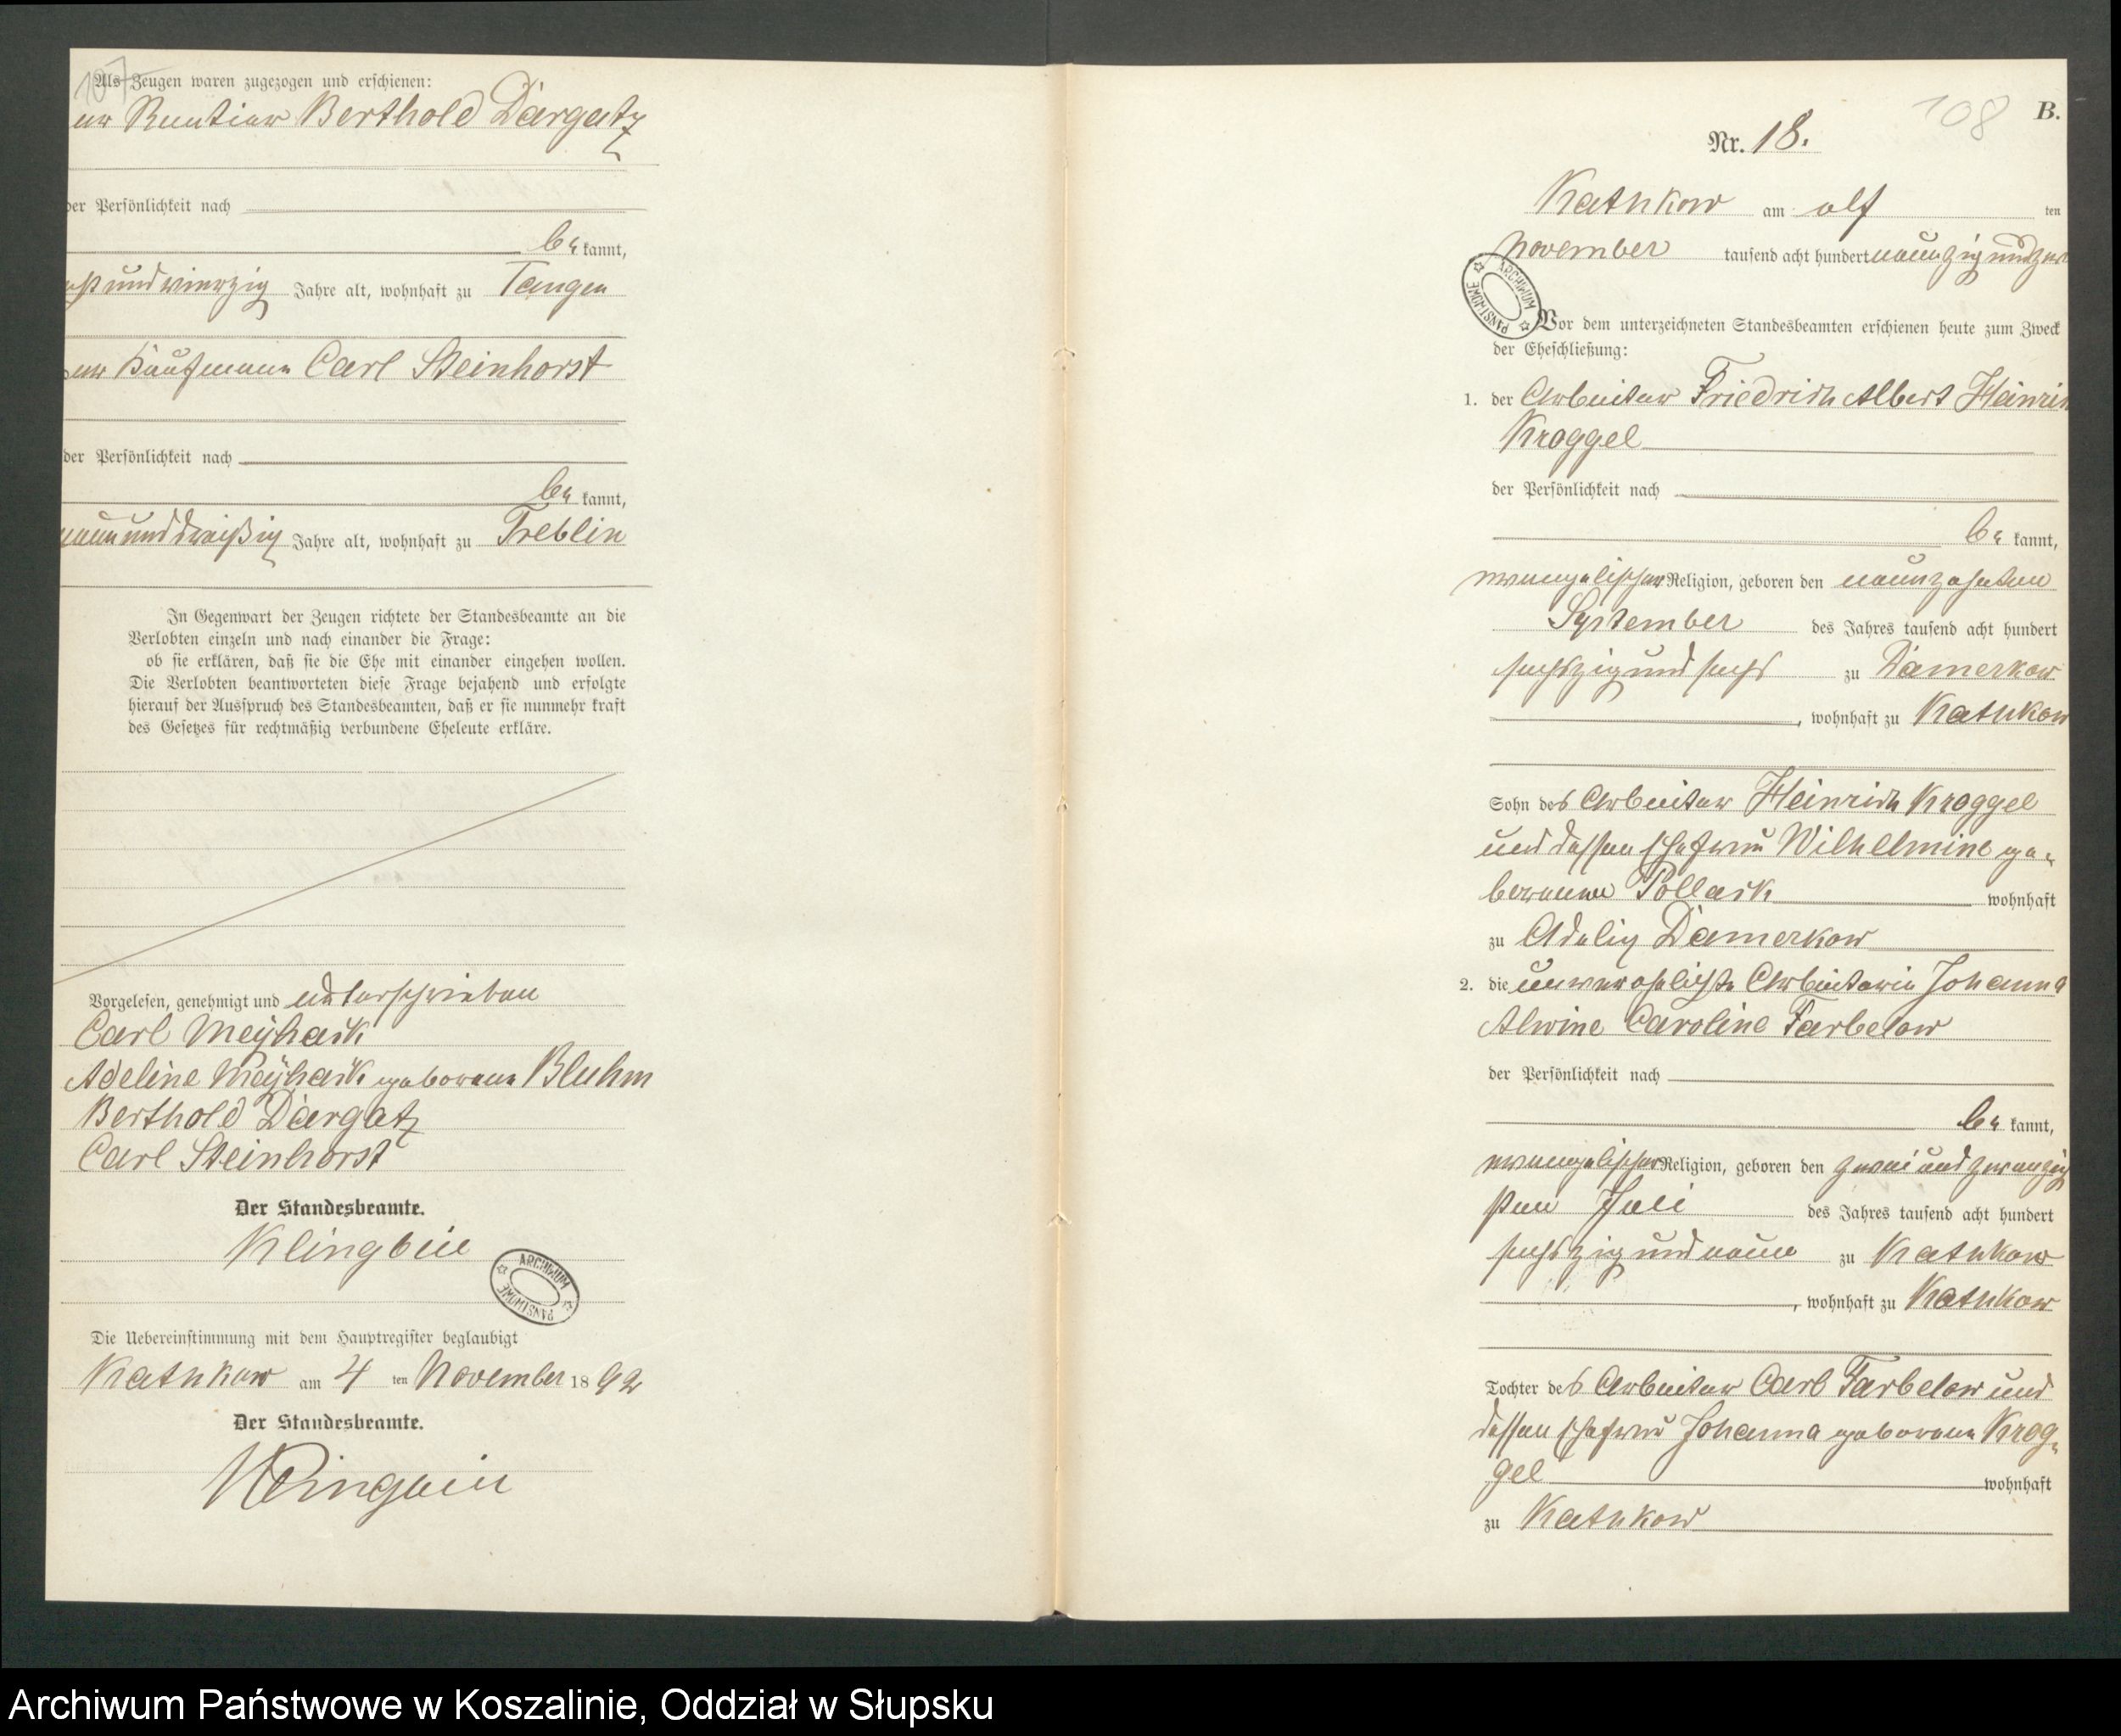 107
Als Zeugen waren zugezogen und erschienen:
er Rentier Berthold Dargatz
der Persönlichkeit nach
be kannt,
und vierzig Jahre alt, wohnhaft zu Tangen
er Kaufmann Carl Steinhorst
der Persönlichkeit nach
be kannt,
neununddreißig Jahre alt, wohnhaft zu Treblin
In Gegenwart der Zeugen richtete der Standesbeamte an die
Verlobten einzeln und nach einander die Frage:
ob sie erklären, daß sie die Ehe mit einander eingehen wollen.
Die Verlobten beantworteten diese Frage bejahend und erfolgte
hierauf der Ausspruch des Standesbeamten, daß er sie nunmehr kraft
des Gesetzes für rechtmäßig verbundene Eheleute erkläre.
Vorgelesen, genehmigt und unterschrieben
Carl Meÿhack
Adeline Meÿhack geborene Bluhm
Berthold Dargatz
Carl Steinhorst
Der Standesbeamte.
Klingbeil
ARCHIWUM PAŃSTWOWE
Die Uebereinstimmung mit dem Hauptregister beglaubigt
Kathkow am 4 ten November 18 92
Der Standesbeamte.
108
B.
Nr. 18.
Kathkow am elf ten
November tausend acht hundert neunzig und zwei
ARCHIWUM PAŃSTWOWE
Vor dem unterzeichneten Standesbeamten erschienen heute zum Zweck
der Eheschließung:
1. der Arbeiter Friedrich Albert Heinrich
Kroggel
der Persönlichkeit nach
be kannt,
evangelischer Religion, geboren den neunzehnten
September des Jahres tausend acht hundert
sechszig und sechs zu Damerkow
, wohnhaft zu Kathkow
Sohn des Arbeiter Heinrich Kroggel
und dessen Ehefrau Wilhelmine ge-
borenen Pollack wohnhaft
zu Adelig Damerkow
2. die unverehelichte Arbeiterin Johanna
Alwine Caroline Farbelow
der Persönlichkeit nach
be kannt,
evangelischer Religion, geboren den zwei und zwanzig
sten Juli des Jahres tausend acht hundert
sechszig und neun zu Kathkow
, wohnhaft zu Kathkow
Tochter des Arbeiter Carl Farbelow und
dessen Ehefrau Johanna geborene Krog-
gel wohnhaft
zu Kathkow
Archiwum Państwowe w Koszalinie, Oddział w Słupsku